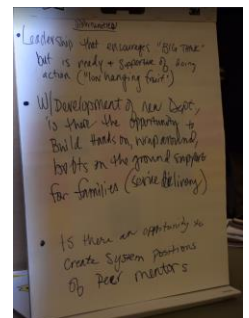 • Leadership that encourages "BIG THINK"
but is ready + supportive of doing
action ("low hanging fruit")
• W/Development of new Dept,
is there the opportunity to
Build Hands on, wraparound,
boots on the ground support
for families (service delivery)
• Is there an opportunity to
create system positions
of Peer mentors